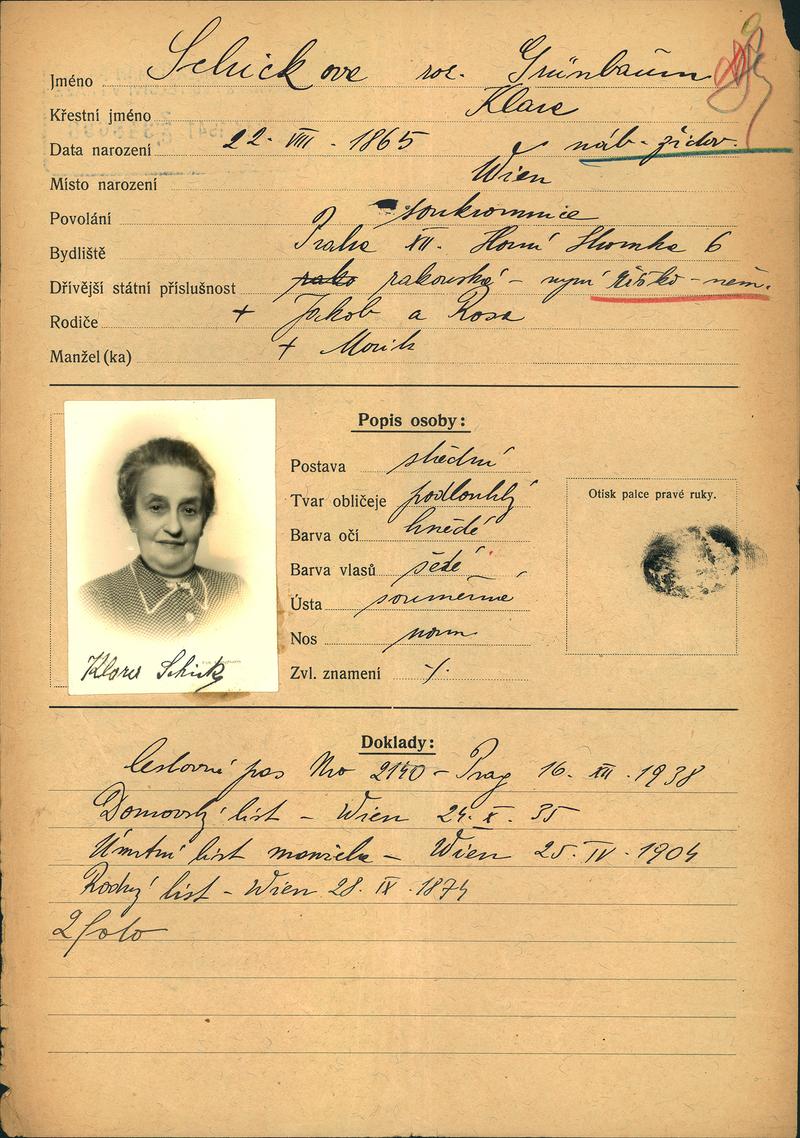 Jméno Schickova roz. Grünbaum
Křestní jméno Klara
Data narození 22. VIII. 1865 náb. židov.
Místo narození Wien
Povolání soukromnice
Bydliště Praha XII. Horní Stromka 6
Dřívější státní příslušnost rako rakouská - nyní říško-něm.
Rodiče + Jakob a Rosa
Manžel (ka) + Moritz
Popis osoby:
Postava střední
Tvar obličeje podlouhlý
Barva očí hnědé
Barva vlasů šedé
Ústa souměrné
Nos norm
Zvl. znamení -/-
Otisk palce pravé ruky.
Klara Schick
Doklady:
Cestovní pas Nro 2140 - Prag 16. XII. 1938
Domovský list - Wien 24. X. 35
Úmrtní list manžela - Wien 25. IV. 1904
Rodný list - Wien 28. IX. 1874
2 foto